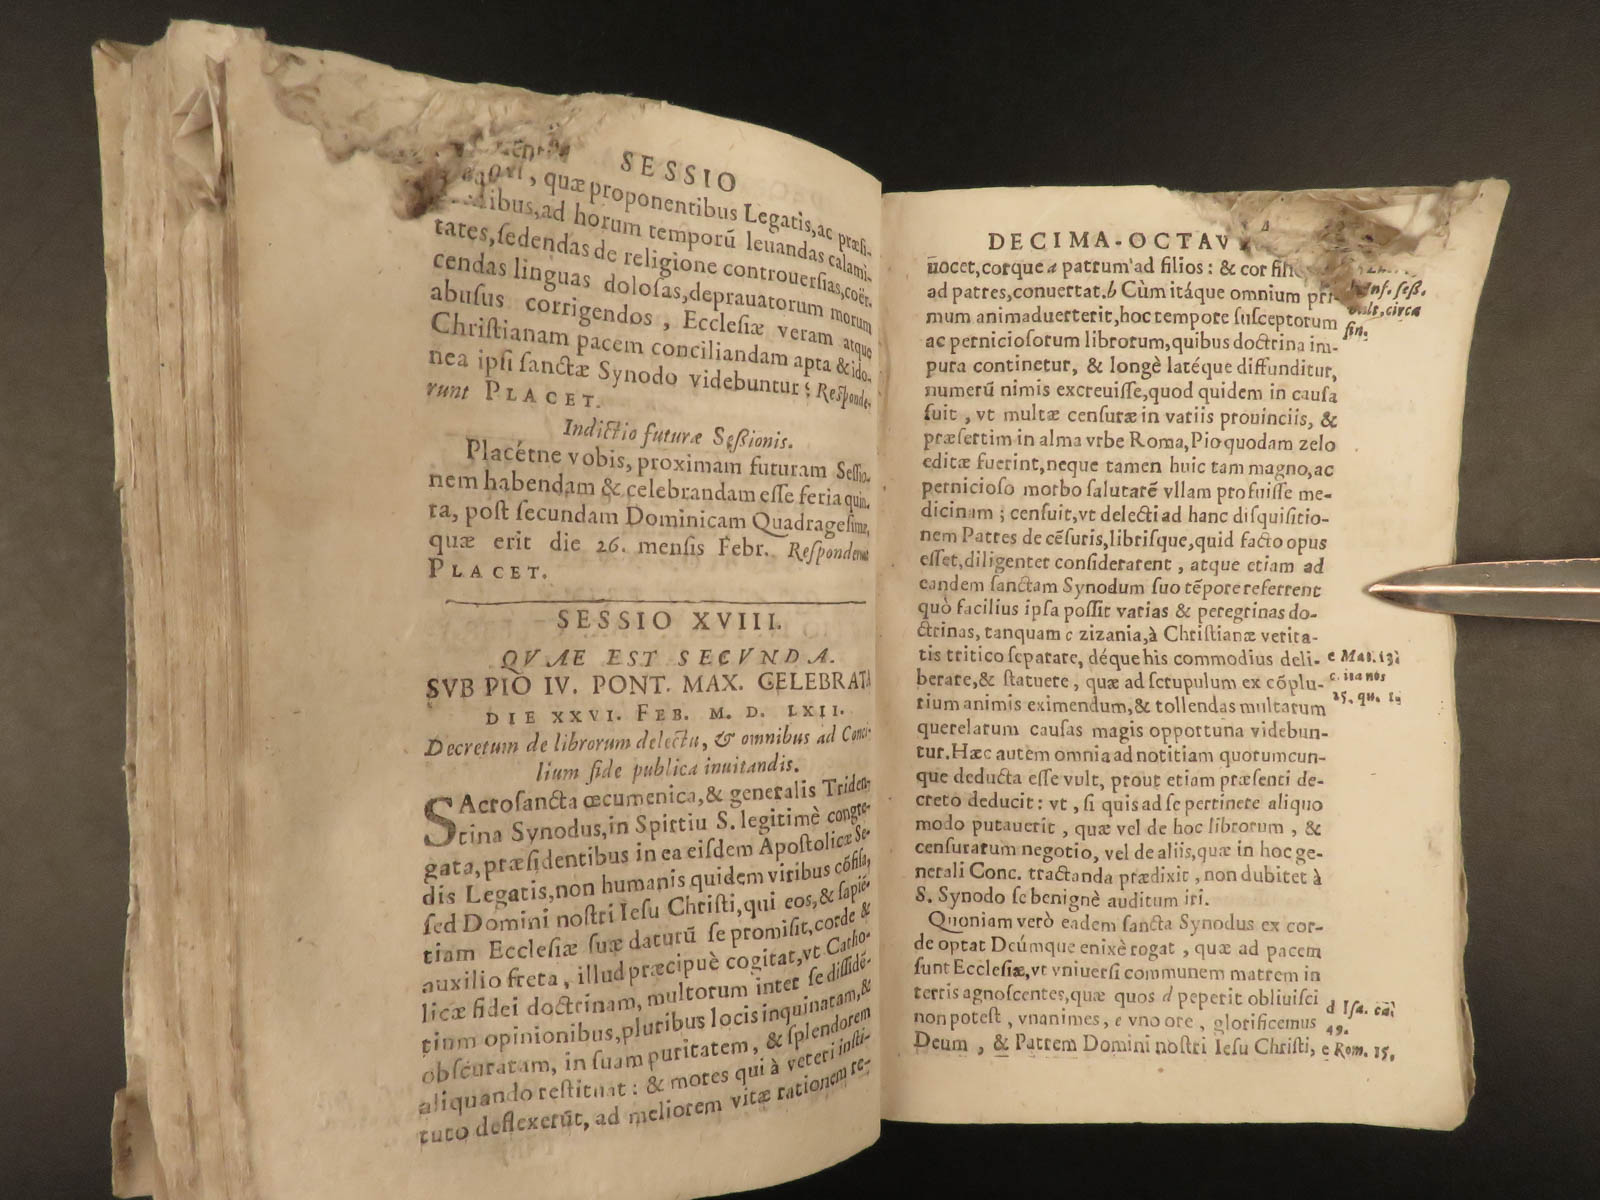 SESSIO
, quæ proponentibus Legatis, ac præſi-
ibus, ad horum temporũ leuandas calami-
tates, ſedendas de religione controuerſias, coër-
cendas linguas doloſas, deprauatorum morum
abuſus corrigendos, Eccleſiæ veram atque
Chriſtianam pacem conciliandam apta & ido-
nea ipſi ſanctæ Synodo videbuntur? Reſponde-
runt PLACET.
Indictio futuræ Seßionis.
Placétne vobis, proximam futuram Seſſio-
nem habendam & celebrandam eſſe feria quin-
ta, poſt ſecundam Dominicam Quadrageſimæ,
quæ erit die 26. menſis Febr. Reſponderunt
PLACET.
SESSIO XVIII.
QVAE EST SECVNDA.
SVB PIO IV. PONT. MAX. CELEBRATA
DIE XXVI. FEB. M. D. LXII.
Decretum de librorum delectu, & omnibus ad Conci-
lium fide publica inuitandis.
SAcroſancta œcumenica, & generalis Triden-
tina Synodus, in Spirtiu S. legitimè congre-
gata, præſidentibus in ea eiſdem Apoſtolicæ Se-
dis Legatis, non humanis quidem viribus cõfiſa,
ſed Domini noſtri Ieſu Chriſti, qui eos, & ſapiẽ-
tiam Eccleſiæ ſuæ daturũ ſe promiſit, corde &
auxilio freta, illud præcipuè cogitat, vt Catho-
licæ fidei doctrinam, multorum inter ſe diſſidẽ-
tium opinionibus, pluribus locis inquinatam, &
obſcuratam, in ſuam puritatem, & ſplendorem
aliquando reſtituat: & mores qui à veteri inſti-
tuto deflexerũt, ad meliorem vitæ rationem re-
DECIMA-OCTAV
uocet, corque a patrum ad filios: & cor fili
ad patres, conuertat. b Cùm itáque omnium pri-
mum animaduerterit, hoc tempore ſuſceptorum
ac pernicioſorum librorum, quibus doctrina im-
pura continetur, & longè latéque diffunditur,
numerũ nimis excreuiſſe, quod quidem in cauſa
fuit, vt multæ cenſuræ in variis prouinciis, &
præſertim in alma vrbe Roma, Pio quodam zelo
editæ fuerint, neque tamen huic tam magno, ac
pernicioſo morbo ſalutarẽ vllam profuiſſe me-
dicinam; cenſuit, vt delecti ad hanc diſquiſitio-
nem Patres de cẽſuris, libriſque, quid facto opus
eſſet, diligenter conſiderarent, atque etiam ad
eandem ſanctam Synodum ſuo tẽpore referrent
quò facilius ipſa poſſit varias & peregrinas do-
ctrinas, tanquam c zizania, à Chriſtianæ verita-
tis tritico ſeparare, déque his commodius deli-
berare, & ſtatuere, quæ ad ſcrupulum ex cõplu-
rium animis eximendum, & tollendas multarum
querelarum cauſas magis opportuna videbun-
tur. Hæc autem omnia ad notitiam quorumcun-
que deducta eſſe vult, prout etiam præſenti de-
creto deducit: vt, ſi quis ad ſe pertinere aliquo
modo putauerit, quæ vel de hoc librorum, &
cenſurarum negotio, vel de aliis, quæ in hoc ge-
nerali Conc. tractanda prædixit, non dubitet à
S. Synodo ſe benignè auditum iri.
Quoniam verò eadem ſancta Synodus ex cor-
de optat Deúmque enixè rogat, quæ ad pacem
ſunt Eccleſiæ, vt vniuerſi communem matrem in
terris agnoſcentes, quæ quos d peperit obliuiſci
non poteſt, vnanimes, e vno ore, glorificemus
Deum, & Patrem Domini noſtri Ieſu Chriſti,
Inf. ſeß.
circa
fin.
c Mat. 13
25. qu. 1.
d Iſa. ca
49.
e Rom. 15.